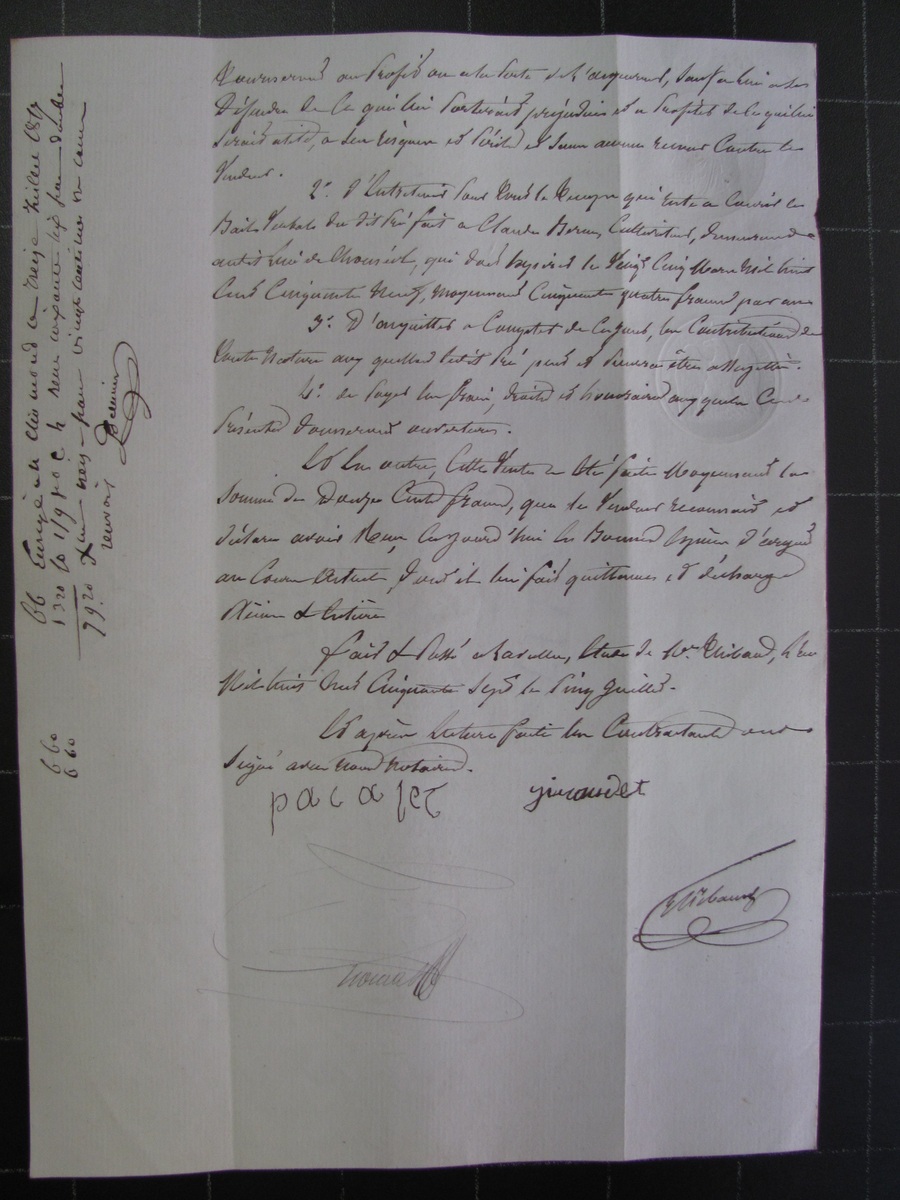 Tourneront au Profit ou à la Perte de l'acquéreur, sauf à lui à se
Défendre de ce qui lui Porterait préjudice et à Profiter de ce qui lui
serait utile, à ses risques et Périls et sans aucun recours Contre le
Vendeur.
2° D'Entretenir pour tout le temps qui reste à Courir le
Bail Verbal du dit Pré fait à Claude Cultivateur, demeurant
au dit lieu de qui doit Expirer le Vingt Cinq Mars Mil huit
Cent Cinquante Neuf, moyennant Cinquante quatre francs par an
3° D'acquitter à Compter de Ce jour, les Contributions de
toute Nature aux quelles le dit Pré peut et pourra être assujetti.
4° de Payer les frais, droits et honoraires aux quels Ces
Présentes donneront ouverture.
Et En outre, Cette Vente a Eté faite Moyennant la
Somme de Douze Cents francs, que le Vendeur reconnaît et
déclare avoir Reçu Ce jourd'hui En Bonnes Espèces d'argent
au Cours Actuel, Dont il lui fait quittance et décharge
Pleine & Entière
fait & Passé à Etude de Me Thibaud, L'an
Mil huit Cent Cinquante Sept le Cinq Juillet.
Et après Lecture faite les Contractants ont
Signé avec Nous Notaires.
pacajet giraudet
Thibaud
66 Enregistré à le treize Juillet 1857
1320 fo 119 ro C 4 reçu soixante six francs
7920 Dixième francs vingt centimes
renvois
660
660